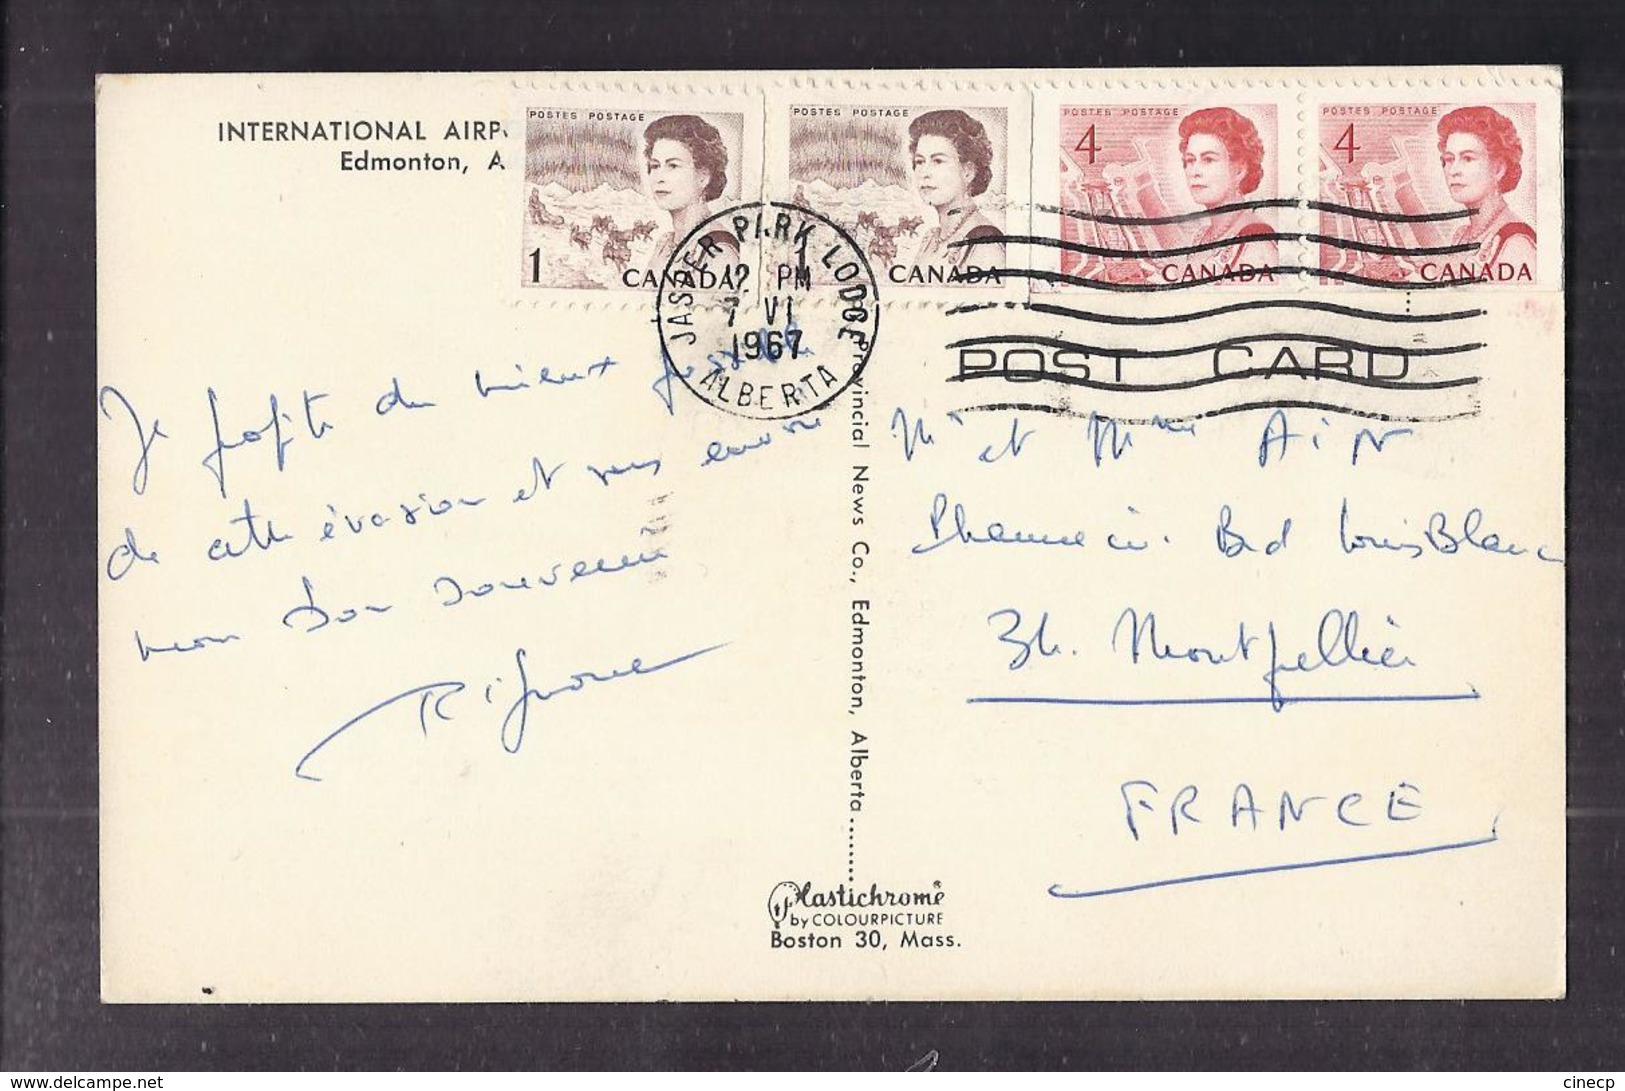 INTERNATIONAL AIRP
Edmonton, A
POSTES POSTAGE
1
CANADA
POSTES POSTAGE
1
CANADA
POSTES POSTAGE
4
CANADA
POSTES POSTAGE
4
CANADA
JASPER PARK LODGE
12 PM
7 VI
1967
ALBERTA
POST CARD
Je profite du mieux possible
de cette évasion et vous envoie
mon bon souvenir
M et Mme AiN
Pharmacie. Bd Louis Blanc
34. Montpellier
FRANCE
Provincial News Co., Edmonton, Alberta.........
Plastichrome
by COLOURPICTURE
Boston 30, Mass.
https://www.delcampe.net
cinecp